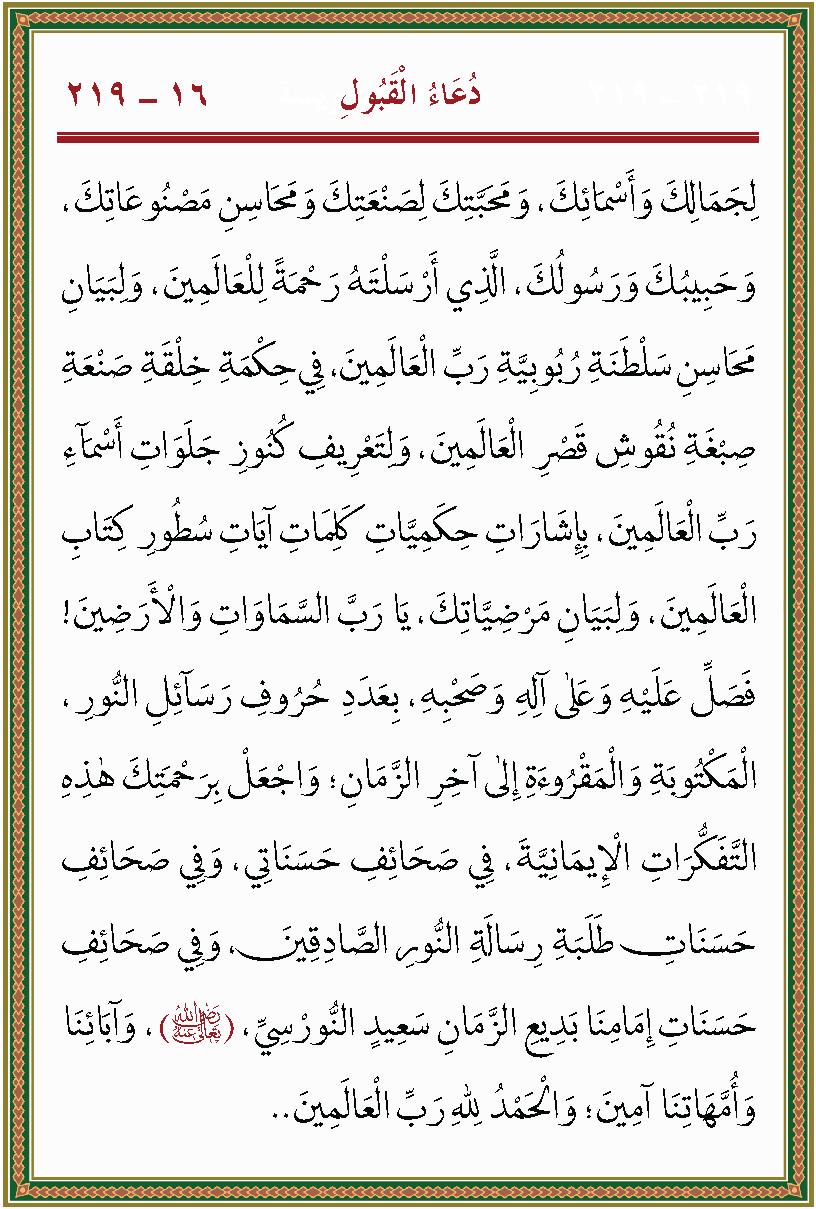 دُعَاءُ الْقَبُولِ ١٦ – ٢١٩
لِجَمَالِكَ وَأَسْمَائِكَ، وَمَحَبَّتِكَ لِصَنْعَتِكَ وَمَحَاسِنِ مَصْنُوعَاتِكَ،
وَحَبِيبُكَ وَرَسُولُكَ، الَّذِي أَرْسَلْتَهُ رَحْمَةً لِلْعَالَمِينَ، وَلِبَيَانِ
مَحَاسِنِ سَلْطَنَةِ رُبُوبِيَّةِ رَبِّ الْعَالَمِينَ، فِي حِكْمَةِ خِلْقَةِ صَنْعَةِ
صِبْغَةِ نُقُوشِ قَصْرِ الْعَالَمِينَ، وَلِتَعْرِيفِ كُنُوزِ جَلَوَاتِ أَسْمَآءِ
رَبِّ الْعَالَمِينَ، بِإِشَارَاتِ حِكَمِيَّاتِ كَلِمَاتِ آيَاتِ سُطُورِ كِتَابِ
الْعَالَمِينَ، وَلِبَيَانِ مَرْضِيَّاتِكَ، يَا رَبَّ السَّمَاوَاتِ وَالْأَرَضِينَ!
فَصَلِّ عَلَيْهِ وَعَلٰى آلِهِ وَصَحْبِهِ، بِعَدَدِ حُرُوفِ رَسَآئِلِ النُّورِ،
الْمَكْتُوبَةِ وَالْمَقْرُوءَةِ إِلٰى آخِرِ الزَّمَانِ؛ وَاجْعَلْ بِرَحْمَتِكَ هٰذِهِ
التَّفَكُّرَاتِ الْإِيمَانِيَّةَ، فِي صَحَائِفِ حَسَنَاتِي، وَفِي صَحَائِفِ
حَسَنَاتِ طَلَبَةِ رِسَالَةِ النُّورِ الصَّادِقِينَ، وَفِي صَحَائِفِ
حَسَنَاتِ إِمَامِنَا بَدِيعِ الزَّمَانِ سَعِيدٍ النُّورْسِيِّ، (رَضِيَ اللهُ تَعَالَى عَنْهُ)، وَآبَائِنَا
وَأُمَّهَاتِنَا آمِينَ؛ وَالْحَمْدُ لِلهِ رَبِّ الْعَالَمِينَ..